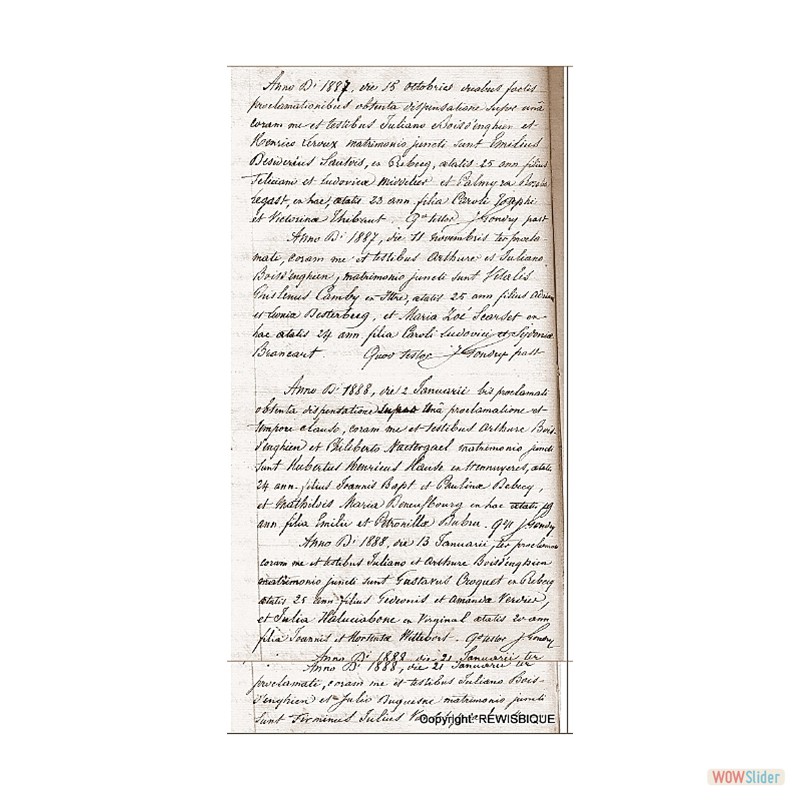 Anno Di 1887, die 15 octobris duabus factis
proclamationibus obtenta dispensatione super unâ
coram me et testibus Juliano Boisd'enghien et
Henrico Leroux matrimonio juncti sunt Emilius
Desiderius Sautois, ex Rebecq, aetatis 25 ann filius
Feliciani et Ludovica et Palmyra
ex hac, aetatis 23 ann. filia Caroli Josephi
et Victorinae Thibaut. J Gondry past
Anno Di 1887, die 11 novembris ter procla-
mati, coram me et testibus Arthuro et Juliano
Boisd'enghien, matrimonio juncti sunt Vitalis
Ghislenus Camby ex Ittre, aetatis 25 ann filius
et Besterberg, et Maria Zoé Scarset ex
hac aetatis 24 ann. filia Caroli Ludovici et Sydoniae
Brancart. Quod testor J Gondry past
Anno Di 1888, die 2 Januarii bis proclamati
obtenta dispensatione super unâ proclamatione et
tempore clauso, coram me et testibus Arthuro Bois-
d'enghien et Philiberto Naetergael matrimonio juncti
sunt Hubertus Henricus Hause ex Hennuyeres, aetatis
24 ann. filius Joannis Bapt et Paulinae Bebecq,
et Mathildis Maria ex hac aetatis 19
ann. filia Emilii et Petronillae Bubru. J Gondry
Anno Di 1888, die 13 Januarii, ter proclamati
coram me et testibus Juliano et Arthuro Boisd'enghien
matrimonio juncti sunt Gustavus Croquet ex Rebecq
aetatis 25 ann filius Gedeonis et Amanda Verdier,
et Julia ex Virginal aetatis 20 ann
filia Joannis et Hortenta Wittevort. Qd testor J Gondry
Anno Di 1888 die 21 Januarii ter
Anno Di 1888, die 21 Januarii ter
proclamati, coram me et testibus Juliano Bois-
d'enghien et Julio Duquesne matrimonio juncti
sunt Firminus Julius
Copyright: REWISBIQUE
WOWSlider